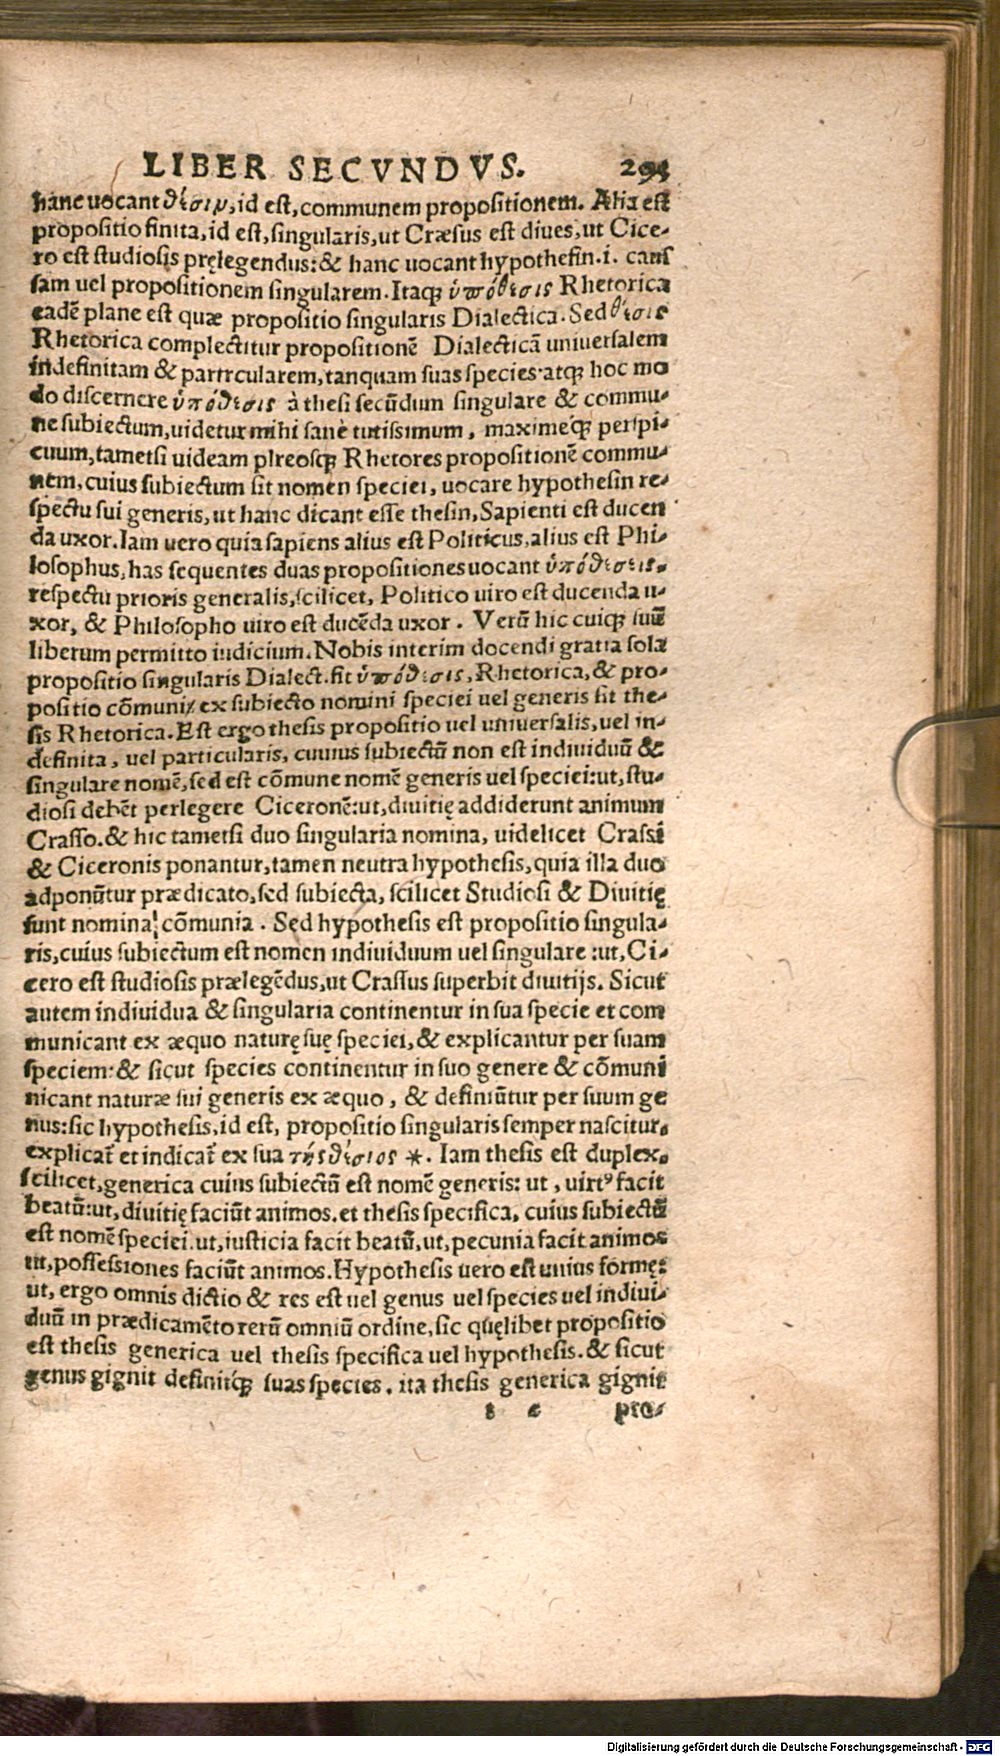 LIBER SECVNDVS. 295
hanc uocant θέσιμ, id est, communem propositionem. Alia est
propositio finita, id est, singularis, ut Cræsus est diues, ut Cice-
ro est studiosis pręlegendus: & hanc uocant hypothesin .i. caus
sam uel propositionem singularem. Itaqꝫ ὑπόθεσις Rhetorica
eadē plane est quæ propositio singularis Dialectica. Sed θέσις
Rhetorica complectitur propositionē Dialecticā uniuersalem
indefinitam & partrcularem, tanquam suas species· atqꝫ hoc mo
do discernere ὑπόθεσις à thesi secūdum singulare & commu-
ne subiectum, uidetur mihi sanè tutissimum, maximeq́ꝫ perspi-
cuum, tametsi uideam plreosqꝫ Rhetores propositionē commu-
nem, cuius subiectum sit nomen speciei, uocare hypothesin re-
spectu sui generis, ut hanc dicant esse thesin, Sapienti est ducen
da uxor. Iam uero quia sapiens alius est Politicus, alius est Phi-
losophus, has sequentes duas propositiones uocant ὑπόθεσεις,
respectu prioris generalis, scilicet, Politico uiro est ducenda u-
xor, & Philosopho uiro est ducēda uxor. Verū hic cuiqꝫ suū
liberum permitto iudicium. Nobis interim docendi gratia sola
propositio singularis Dialect. fit ὑπόθεσις, Rhetorica, & pro-
positio cōmunis ex subiecto nomini speciei uel generis fit the-
sis Rhetorica. Est ergo thesis propositio uel uniuersalis, uel in-
definita, uel particularis, cuuius subiectū non est indiuiduū &
singulare nomē, sed est cōmune nomē generis uel speciei: ut, stu-
diosi debēt perlegere Ciceronē: ut, diuitię addiderunt animum
Crasso. & hic tametsi duo singularia nomina, uidelicet Crassi
& Ciceronis ponantur, tamen neutra hypothesis, quia illa duo
adponūtur prædicato, sed subiecta, scilicet Studiosi & Diuitię
sunt nomina cōmunia. Sed hypothesis est propositio singula-
ris, cuius subiectum est nomen indiuiduum uel singulare: ut, Ci-
cero est studiosis prælegēdus, ut Crassus superbit diuitijs. Sicut
autem indiuidua & singularia continentur in sua specie et com
municant ex æquo naturę suę speciei, & explicantur per suam
speciem: & sicut species continentur in suo genere & cōmuni
nicant naturæ sui generis ex æquo, & definiūtur per suum ge
nus: sic hypothesis, id est, propositio singularis semper nascitur,
explicat̄ et indicat̄ ex sua τῆς θέσιος *. Iam thesis est duplex,
scilicet, generica cuius subiectū est nomē generis: ut, uirtꝰ facit
beatū: ut, diuitię faciūt animos. et thesis specifica, cuius subiectū
est nomē speciei. ut, iusticia facit beatū, ut, pecunia facit animos
ut, possessiones faciūt animos. Hypothesis uero est unius formę:
ut, ergo omnis dictio & res est uel genus uel species uel indiui-
duū in prædicamēto rerū omniū ordine, sic quęlibet propositio
est thesis generica uel thesis specifica uel hypothesis. & sicut
genus gignit definitqꝫ suas species, ita thesis generica gignit
pro-